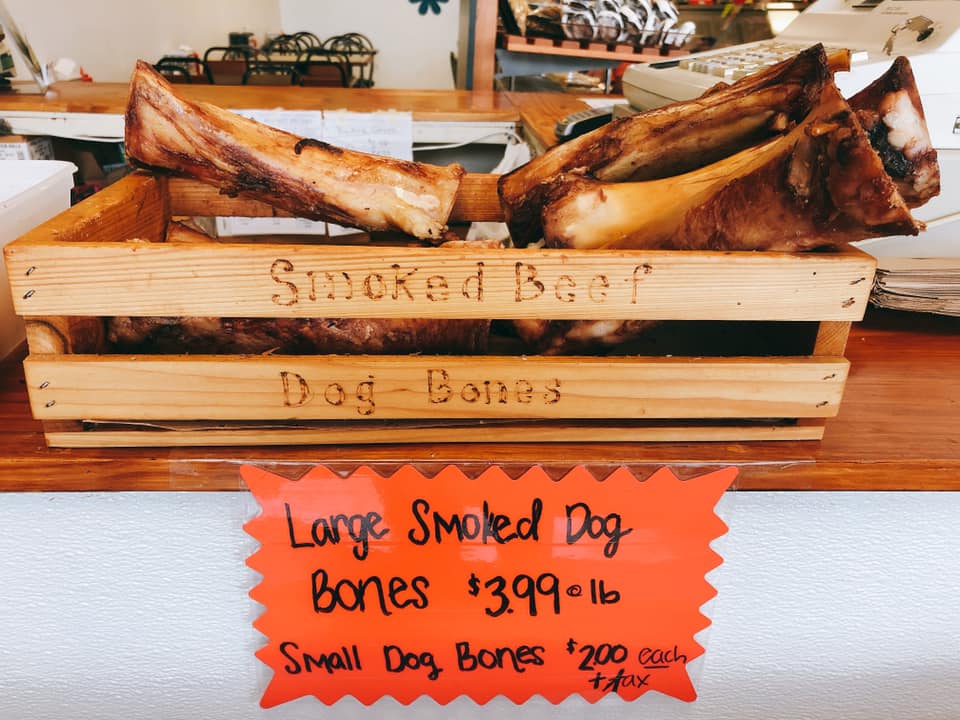 Smoked Beef
Dog Bones
Large Smoked Dog
Bones $3.99 @ lb
Small Dog Bones $2.00 each
+ tax